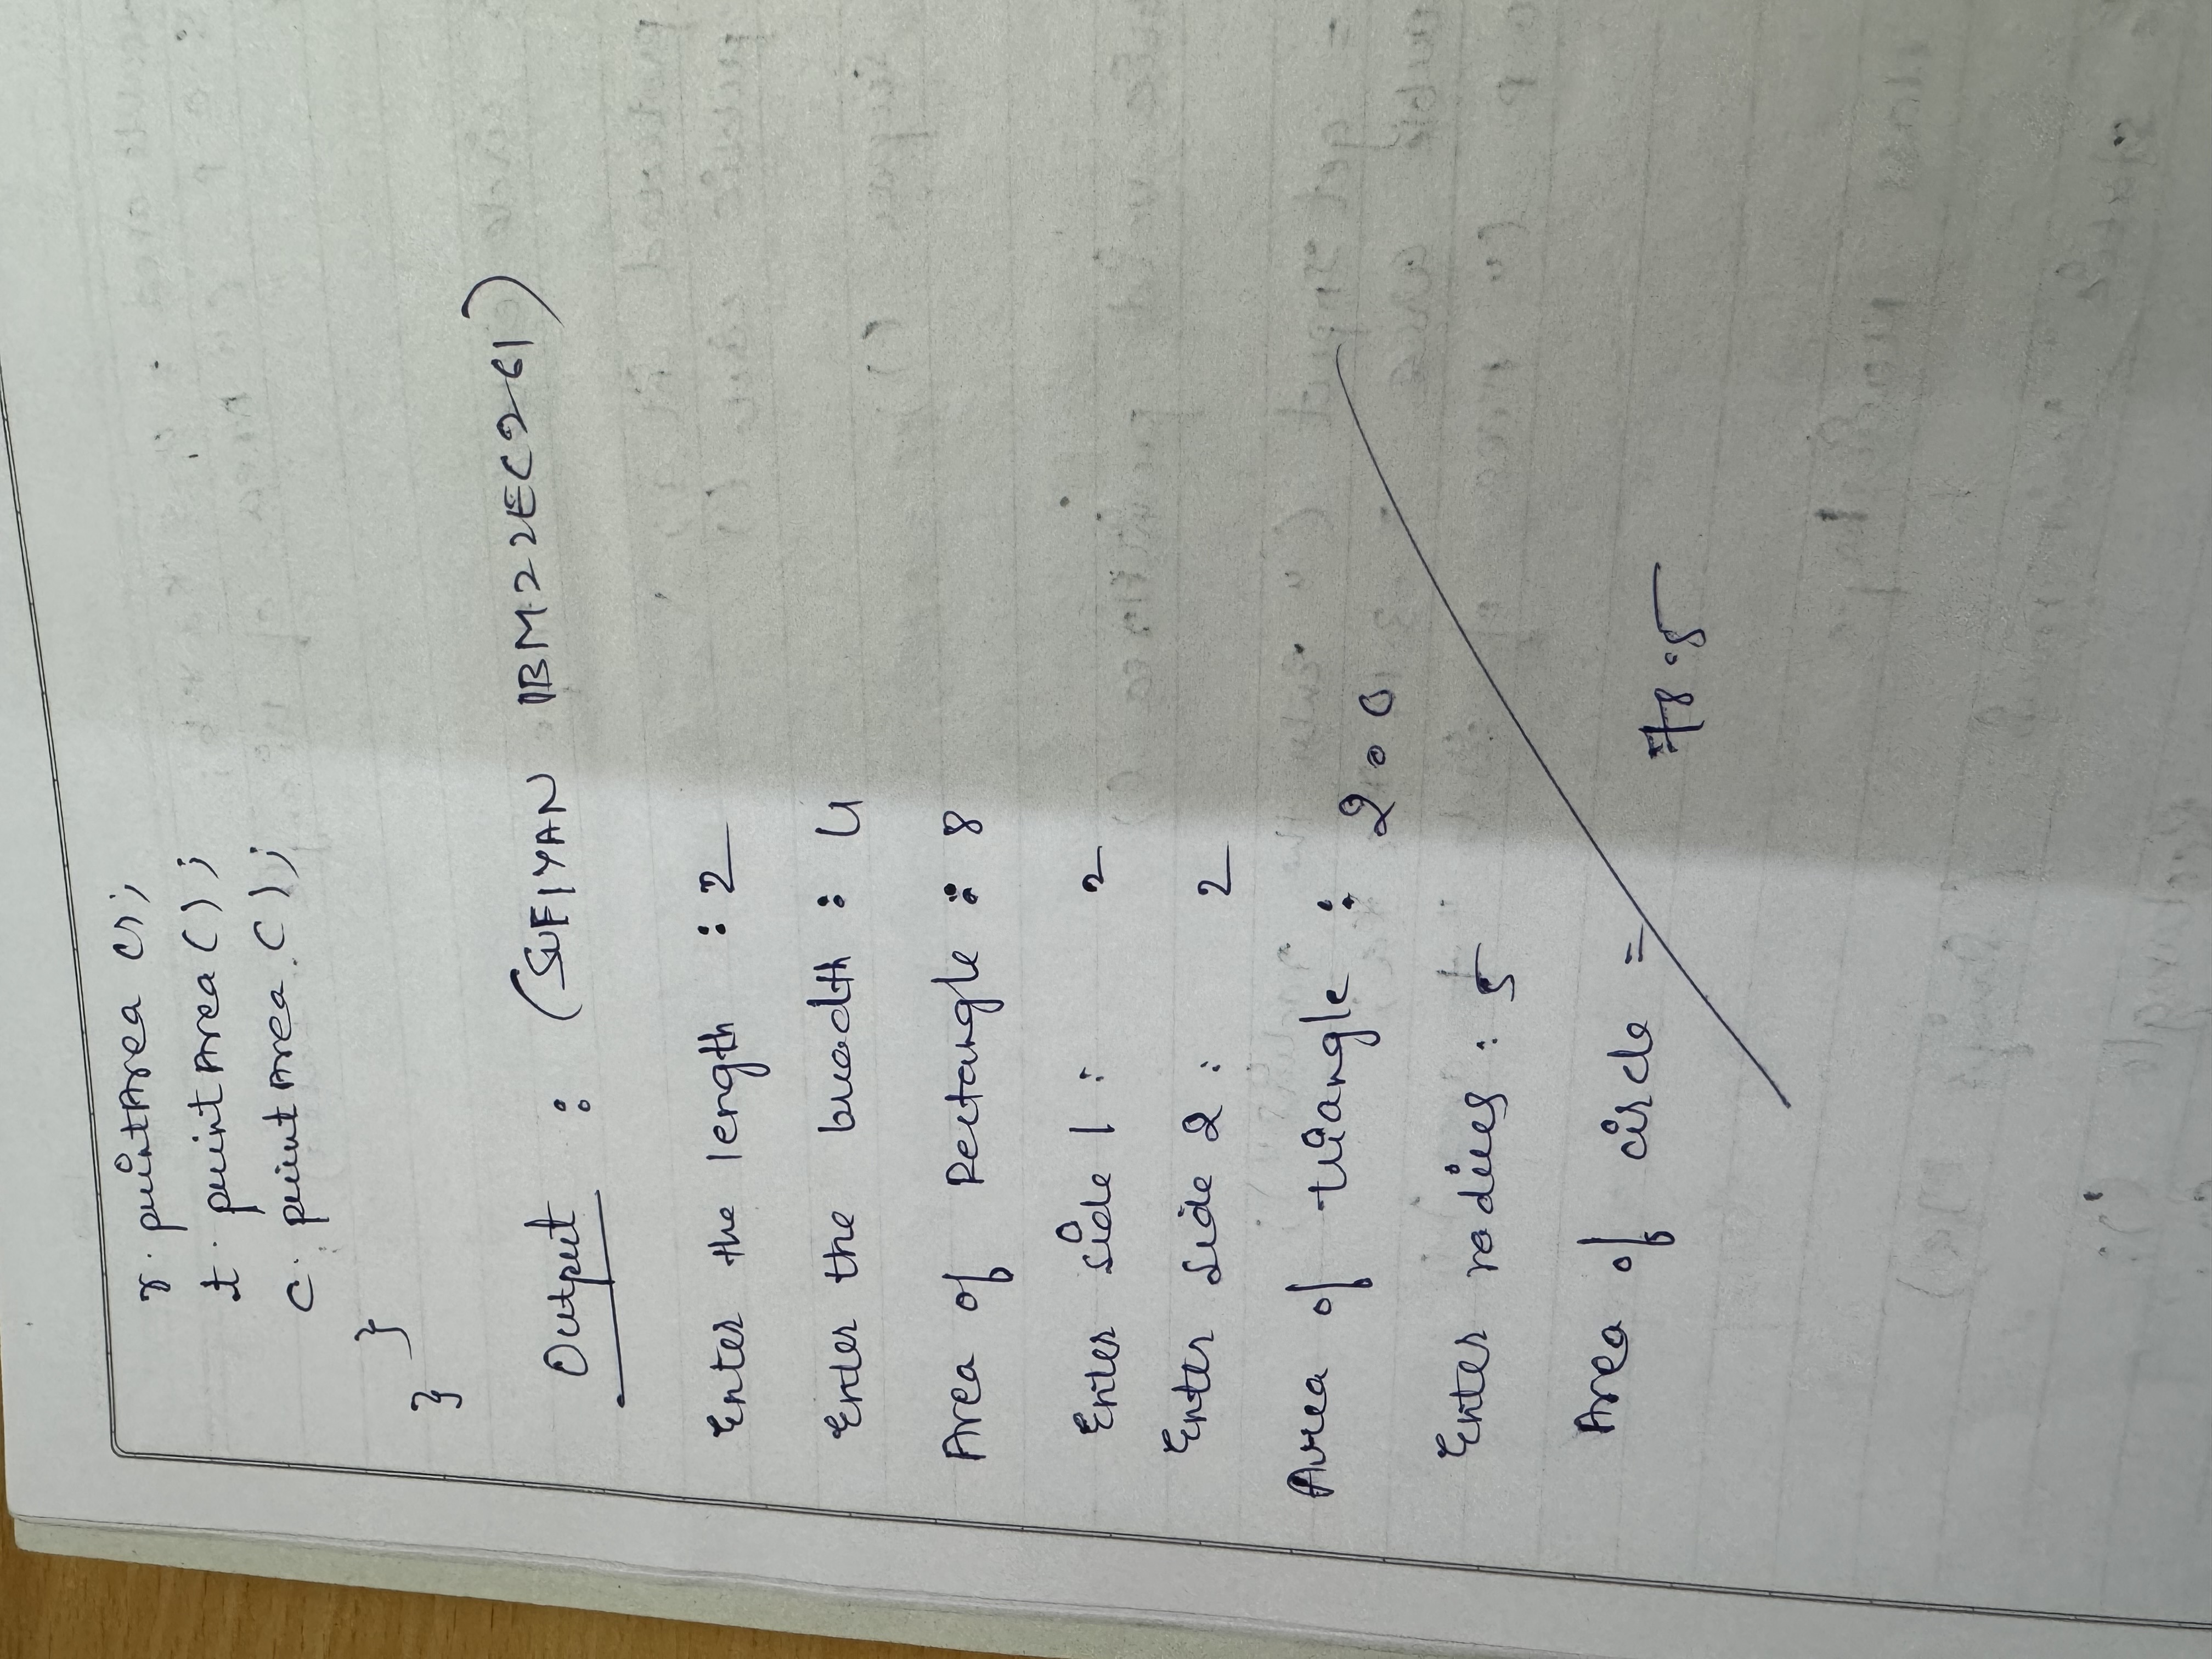 r. printArea ();
t. printArea ();
c. printArea ();
}
}
Output : (SUFIYAN 1BM22EC261)
Enter the length : 2
Enter the breadth : 4
Area of Rectangle : 8
Enter side 1 : 2
Enter side 2 : 2
Area of triangle : 2.0
Enter radius : 5
Area of circle = 78.5